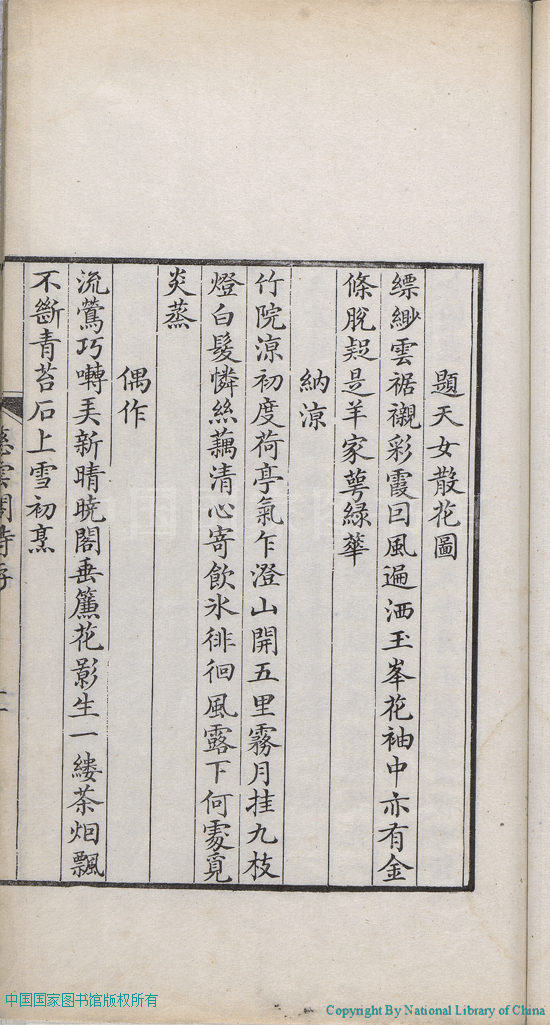 題天女散花圖
縹緲雲裾襯彩霞回風遍洒玉峯花袖中亦有金
條脫疑是羊家萼綠華
納涼
竹院涼初度荷亭氣乍澄山開五里霧月挂九枝
燈白髮憐絲藕清心寄飲氷徘徊風露下何處覓
炎蒸
偶作
流鶯巧囀弄新晴曉閣垂簾花影生一縷茶烟飄
不斷青苔石上雪初烹
慈雲閣詩存
中国国家图书馆版权所有
Copyright By National Library of China